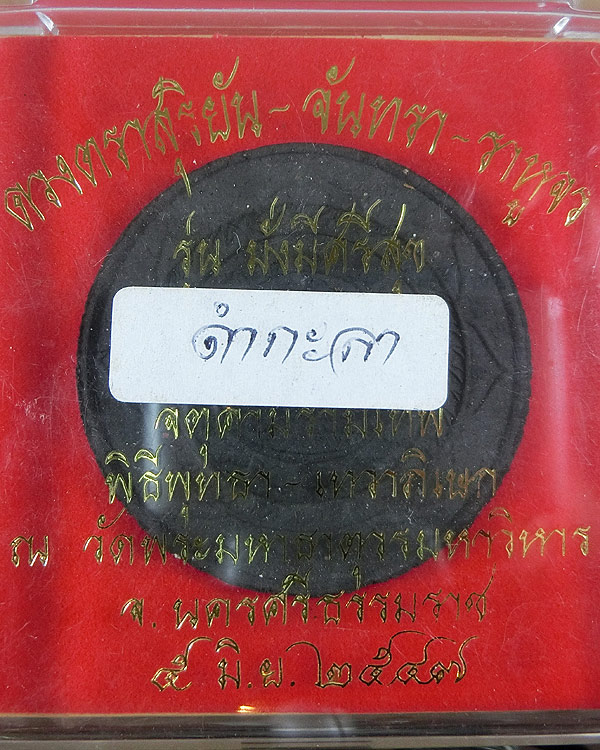 ดวงตราสุริยัน - จันทรา - ราหูจร
รุ่น มั่งมีศรีสุข
ดำกะลา
จตุคามรามเทพ
พิธีพุทธา - เทวาภิเษก
ณ วัดพระมหาธาตุวรมหาวิหาร
จ. นครศรีธรรมราช
๕ มิ.ย. ๒๕๔๗